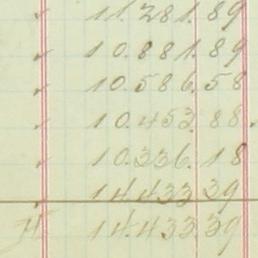 ✓ 11.281.89
✓ 10.881.89
✓ 10.586.58
✓ 10.453.88.
✓ 10.336.18
✓ 14.433.39
14.433.39